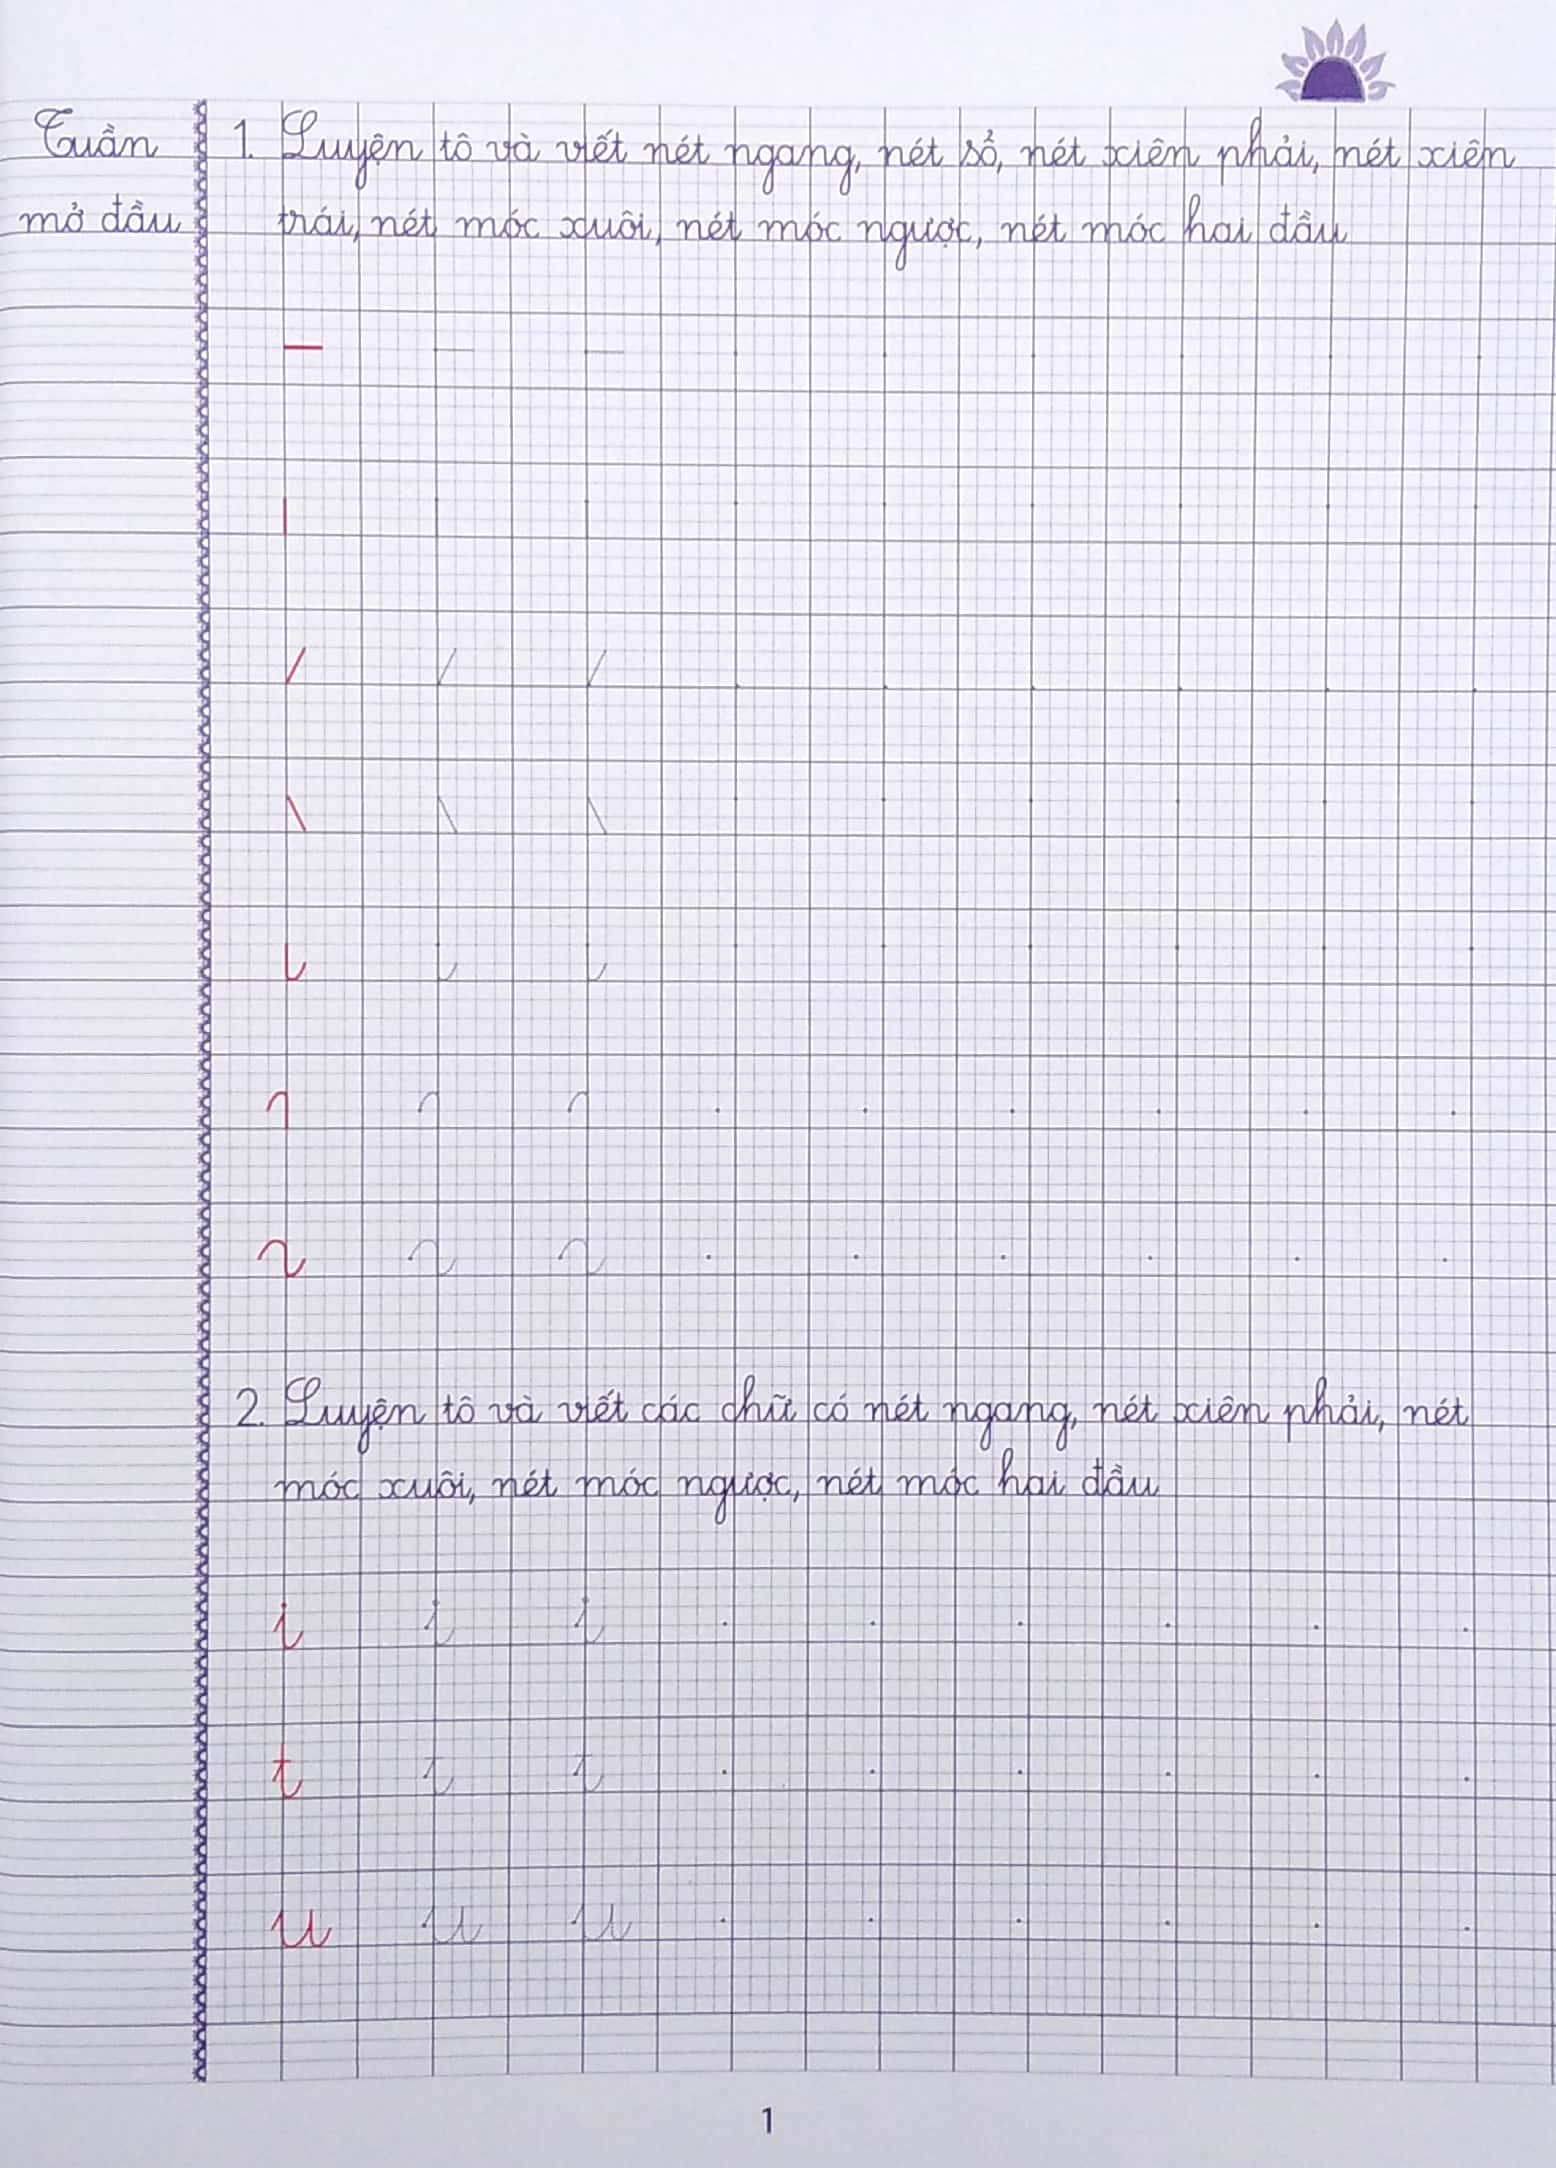 Tuần
mở đầu
1. Luyện tô và viết nét ngang, nét sổ, nét xiên phải, nét xiên
trái, nét móc xuôi, nét móc ngược, nét móc hai đầu
2. Luyện tô và viết các chữ có nét ngang, nét xiên phải, nét
móc xuôi, nét móc ngược, nét móc hai đầu
i i i
t t t
u u u
1